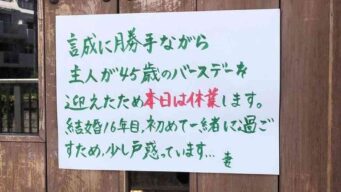 誠に勝手ながら
主人が45歳のバースデーを
迎えたため本日は休業します。
結婚16年目,初めて一緒に過ご
すため,少し戸惑っています… 妻